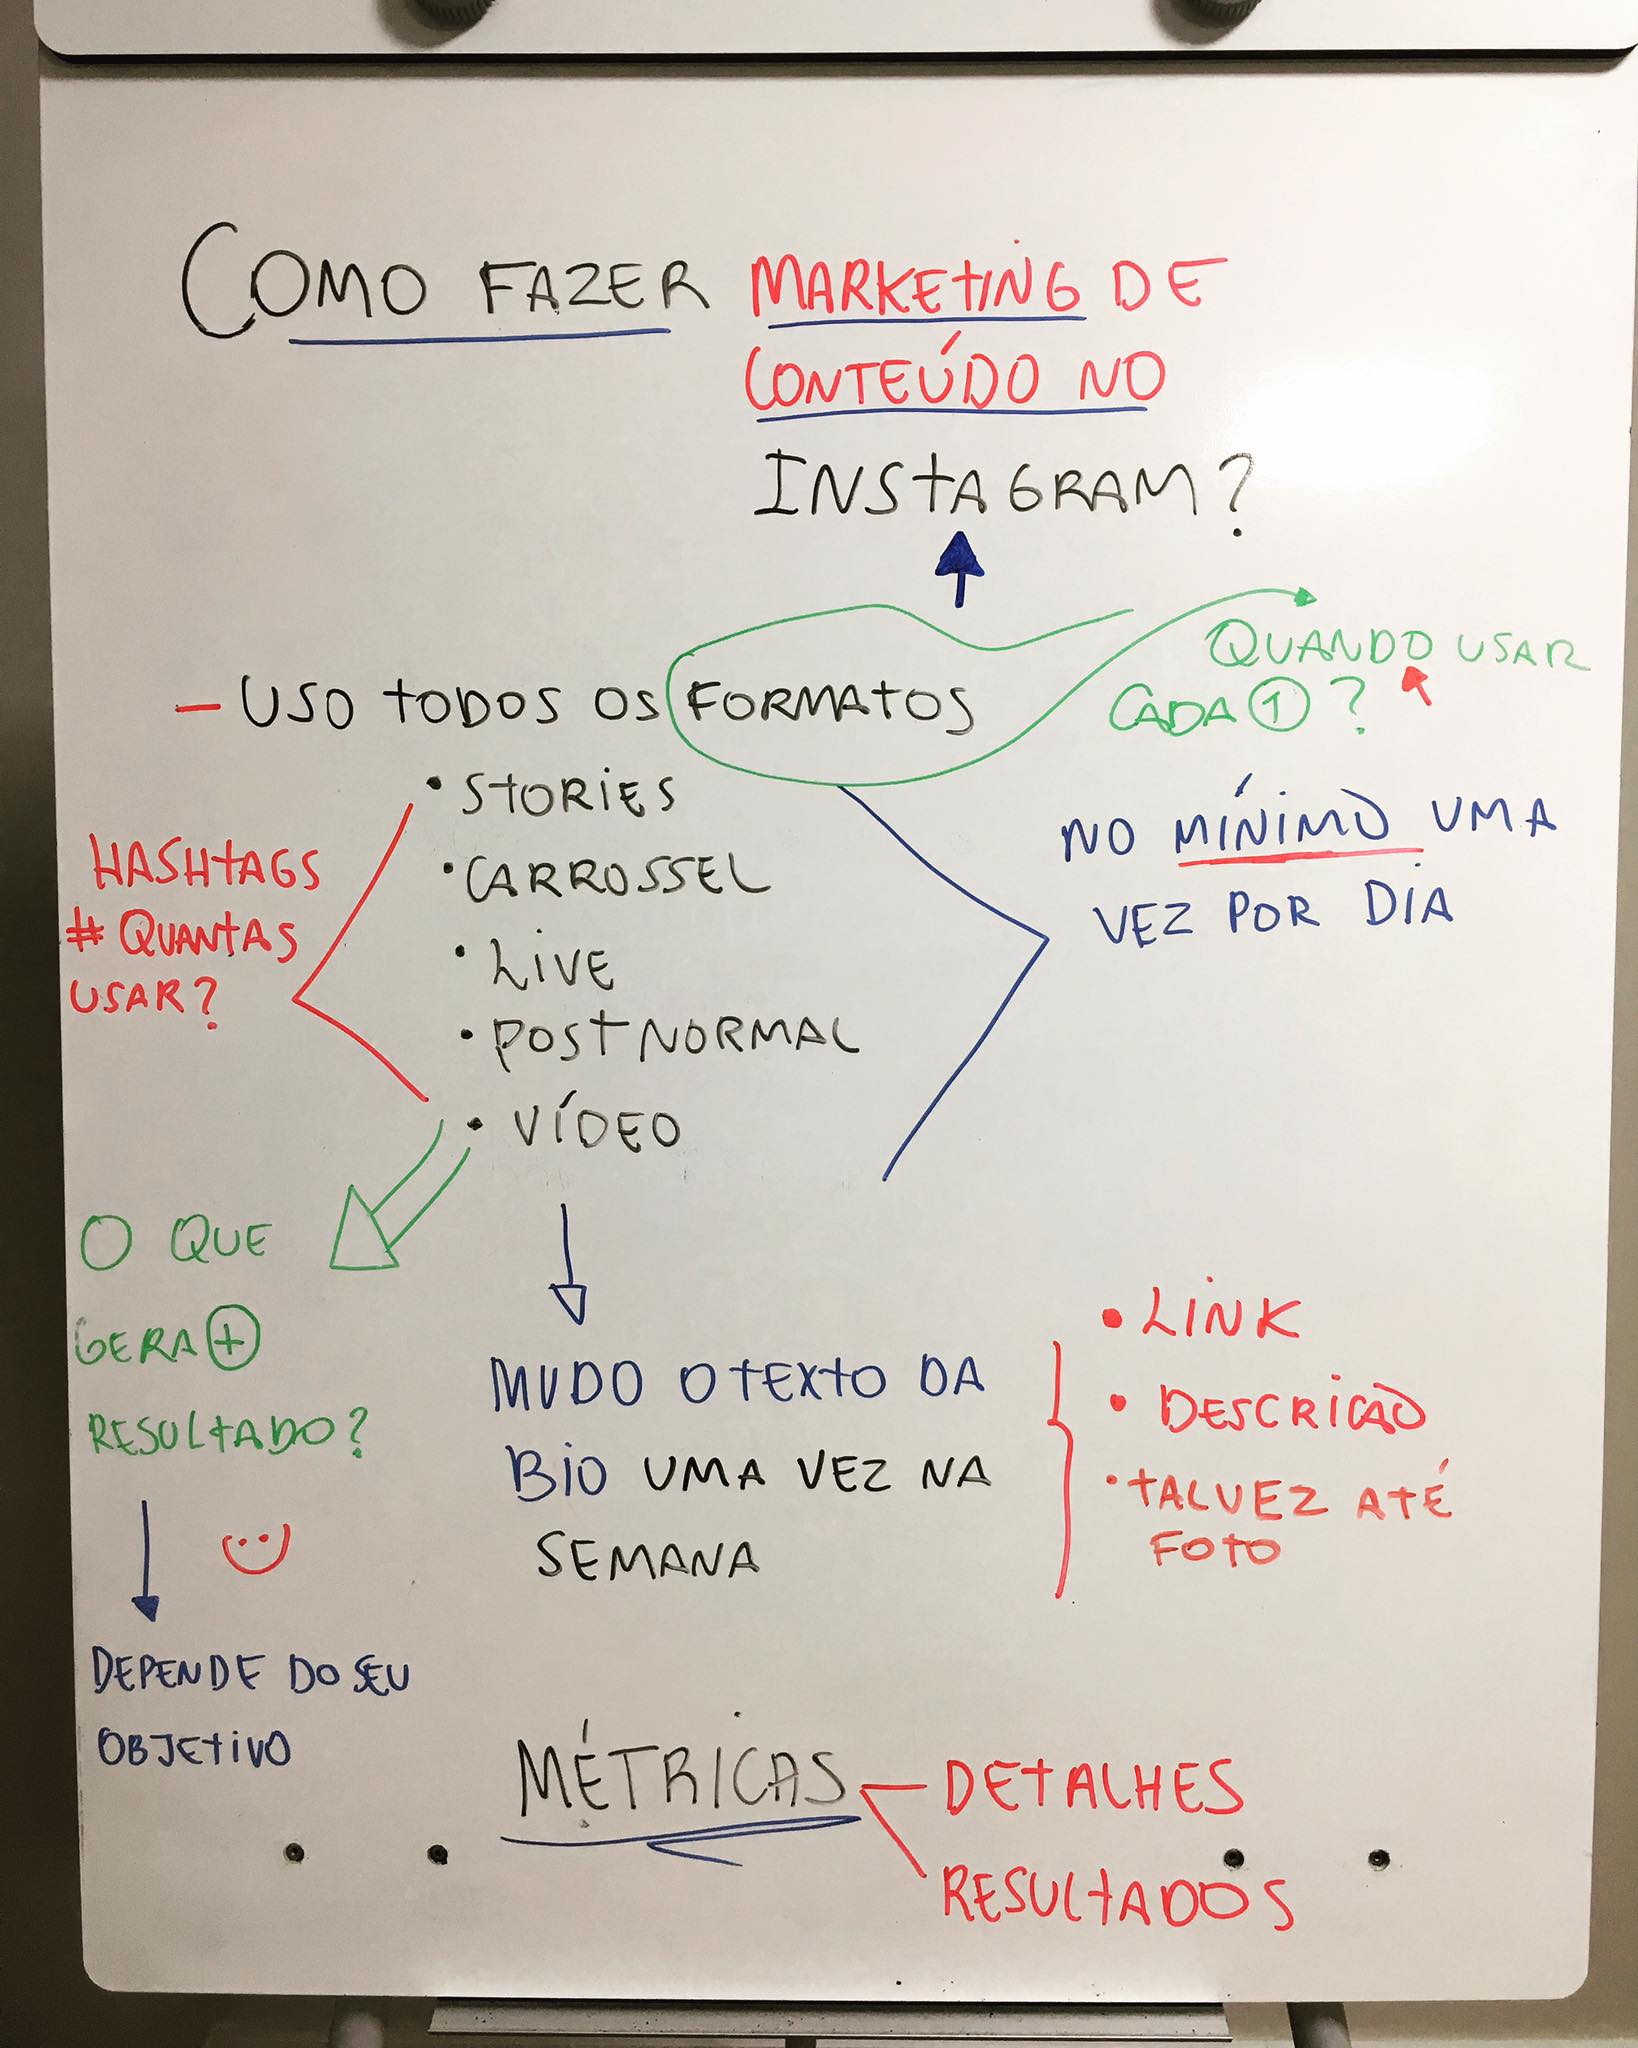 COMO FAZER MARKETING DE
CONTEÚDO NO
INSTAGRAM?
QUANDO USAR
CADA 1 ?
- USO TODOS OS FORMATOS
• STORIES
• CARROSSEL
• LIVE
• POST NORMAL
• VÍDEO
NO MÍNIMO UMA
VEZ POR DIA
HASHTAGS
# QUANTAS
USAR?
O QUE
GERA +
RESULTADO?
DEPENDE DO SEU
OBJETIVO
MUDO O TEXTO DA
BIO UMA VEZ NA
SEMANA
• LINK
• DESCRICÃO
• TALVEZ ATÉ
FOTO
MÉTRICAS
DETALHES
RESULTADOS